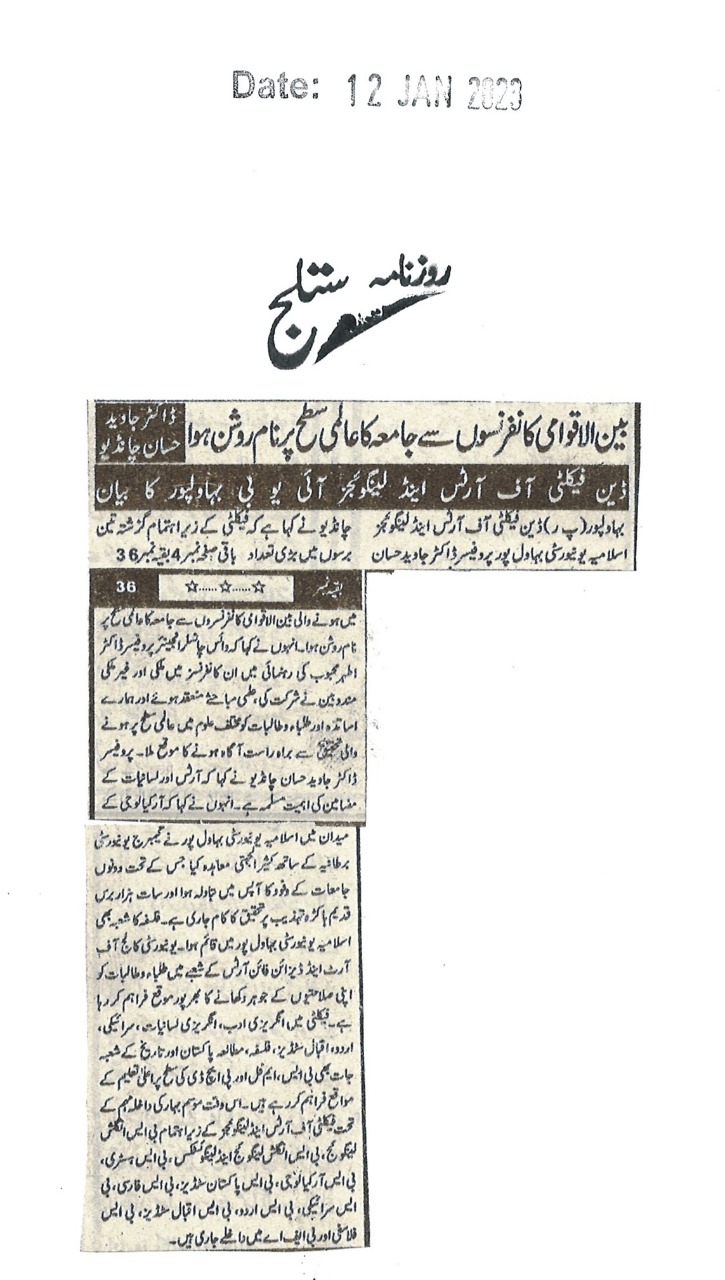 Date: 12 JAN 2023
روزنامہ ستلج
بین الاقوامی کانفرنسوں سے جامعہ کا عالمی سطح پر نام روشن ہوا
ڈاکٹر جاوید
حسان چانڈیو
ڈین فیکلٹی آف آرٹس اینڈ لینگوئجز آئی یو بی بہاولپور کا بیان
بہاولپور(پ ر) ڈین فیکلٹی آف آرٹس اینڈ لینگوئجز
اسلامیہ یونیورسٹی بہاول پور پروفیسر ڈاکٹر جاوید حسان
چانڈیو نے کہا ہے کہ فیکلٹی کے زیر اہتمام گزشتہ تین
برسوں میں بڑی تعداد باقی صفحہ نمبر 4 بقیہ نمبر 36
بقیہ نمبر ☆......☆......☆ 36
میں ہونے والی بین الاقوامی کانفرنسوں سے جامعہ کا عالمی سطح پر
نام روشن ہوا۔ انہوں نے کہا کہ وائس چانسلر انجینئر پروفیسر ڈاکٹر
اطہر محبوب کی رہنمائی میں ان کانفرنسز میں ملکی اور غیر ملکی
مندوبین نے شرکت کی، علمی مباحثے منعقد ہوئے اور ہمارے
اساتذہ اور طلباء وطالبات کو مختلف علوم میں عالمی سطح پر ہونے
والی تحقیق سے براہ راست آگاہ ہونے کا موقع ملا۔ پروفیسر
ڈاکٹر جاوید حسان چانڈیو نے کہا کہ آرٹس اور لسانیات کے
مضامین کی اہمیت مسلمہ ہے۔ انہوں نے کہا کہ آرکیالوجی کے
میدان میں اسلامیہ یونیورسٹی بہاول پور نے کیمبرج یونیورسٹی
برطانیہ کے ساتھ کثیر الجہتی معاہدہ کیا جس کے تحت دونوں
جامعات کے وفود کا آپس میں تبادلہ ہوا اور سات ہزار برس
قدیم ہاکڑہ تہذیب پر تحقیق کا کام جاری ہے۔ فلسفہ کا شعبہ بھی
اسلامیہ یونیورسٹی بہاول پور میں قائم ہوا۔ یونیورسٹی کالج آف
آرٹ اینڈ ڈیزائن فائن آرٹس کے شعبے میں طلباء وطالبات کو
اپنی صلاحیتوں کے جوہر دکھانے کا بھرپور موقع فراہم کر رہا
ہے۔ فیکلٹی میں انگریزی ادب، انگریزی لسانیات، سرائیکی،
اردو، اقبال سٹڈیز، فلسفہ، مطالعہ پاکستان اور تاریخ کے شعبہ
جات بھی بی ایس، ایم فل اور پی ایچ ڈی کی سطح پر اعلیٰ تعلیم کے
مواقع فراہم کر رہے ہیں۔ اس وقت موسم بہار کی داخلہ مہم کے
تحت فیکلٹی آف آرٹس اینڈ لینگوئجز کے زیر اہتمام بی ایس انگلش
لینگوئج، بی ایس انگلش لینگوئج اینڈ لینگوئسٹکس، بی ایس ہسٹری،
بی ایس آرکیالوجی، بی ایس پاکستان سٹڈیز، بی ایس فارسی، بی
ایس سرائیکی، بی ایس اردو، بی ایس اقبال سٹڈیز، بی ایس
فلاسفی اور بی ایف اے میں داخلے جاری ہیں۔